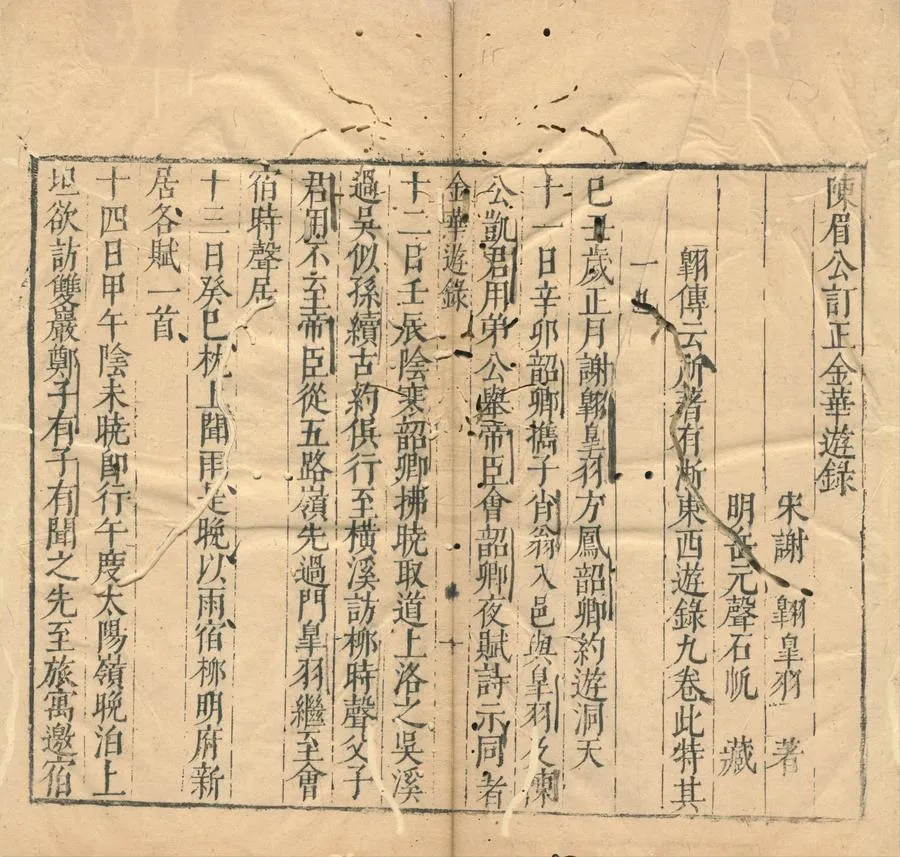 陳眉公訂正金華遊錄
宋謝翶皐羽著
明岳元聲石帆藏
翶傳云所著有浙東西遊錄九卷此特其
一也
己丑歲正月謝翶皐羽方鳳韶卿約遊洞天
十一日辛卯韶卿攜子肖翁入邑與皐羽及陳
公凱君用弟公舉帝臣會韶卿夜賦詩示同者
金華遊錄
十二日壬辰陰寒韶卿拂曉取道上洛之吳溪
過吳似孫續古約俱行至橫溪訪柳時聲父子
君用不至帝臣從五路嶺先過門皐羽繼至會
宿時聲居
十三日癸巳枕上聞雨是晚以雨宿柳明府新
居各賦一首
十四日甲午陰未曉卽行午度太陽嶺晚泊上
坦欲訪雙巖鄭子有子有聞之先至旅寓邀宿